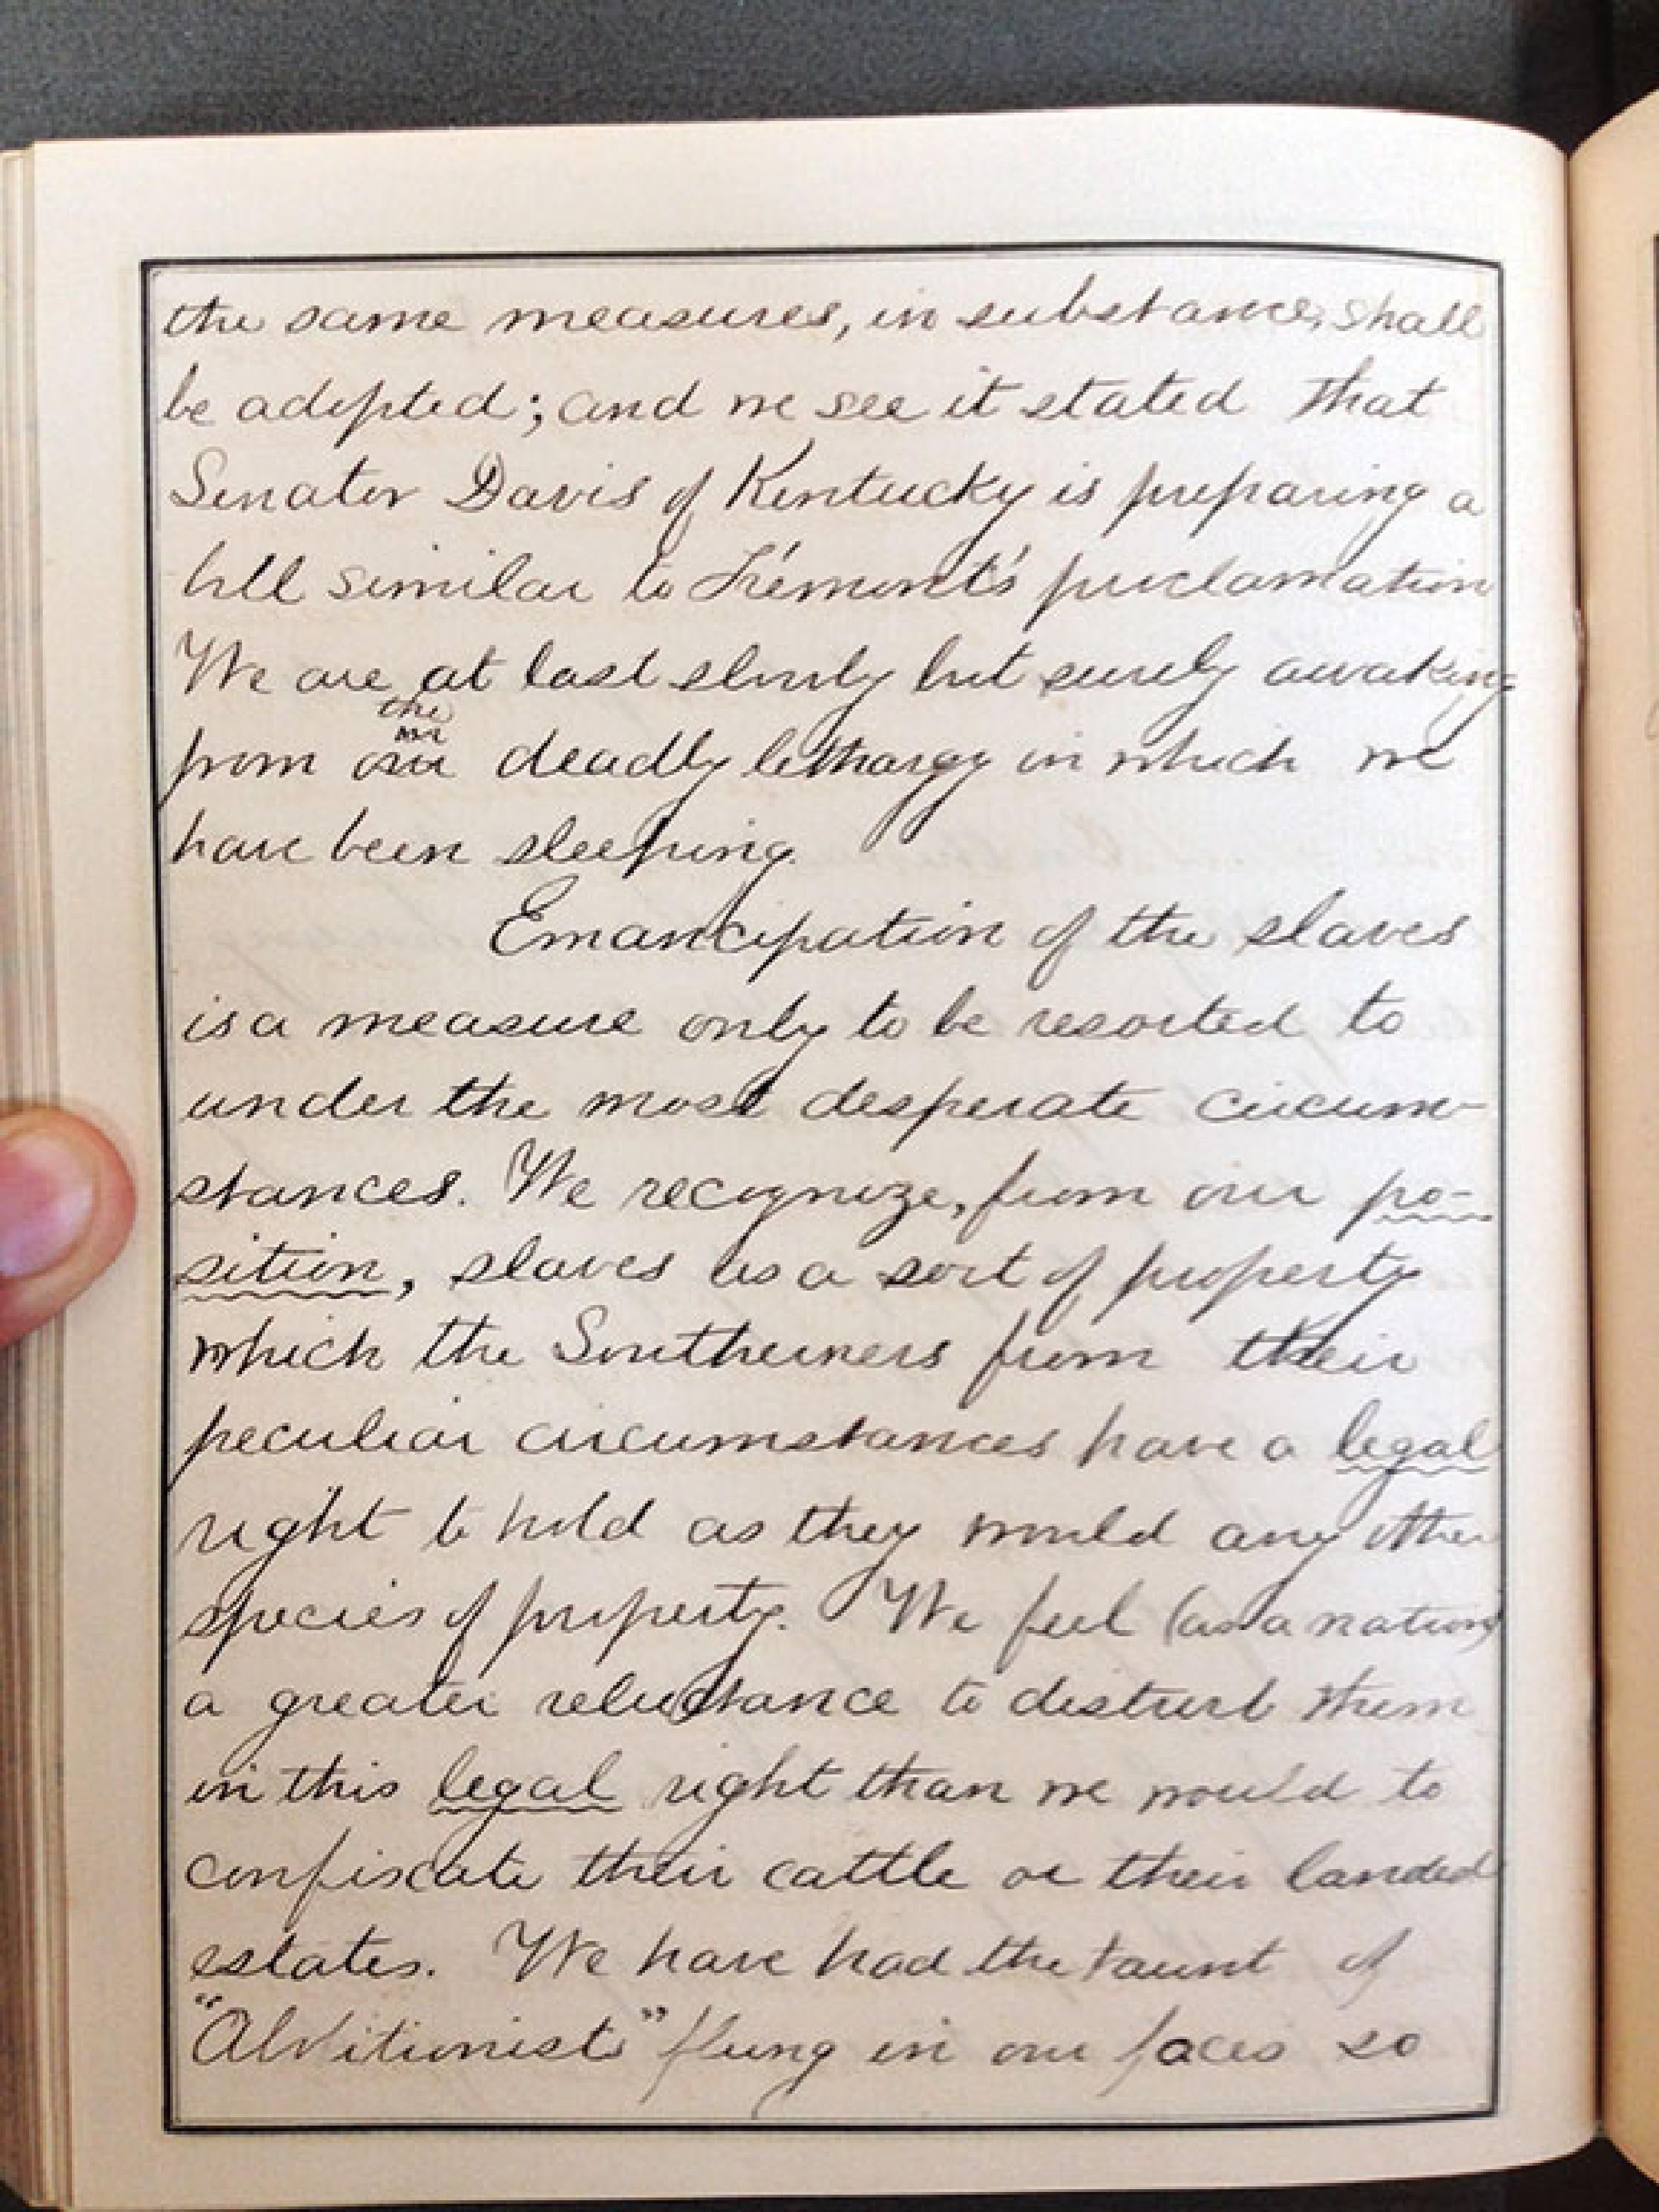 the same measures, in substance, shall
be adopted; and we see it stated that
Senator Davis of Kentucky is preparing a
bill similar to Frémont's proclamation
We are at last slowly but surely awaking
the
from our deadly lethargy in which we
have been sleeping.
Emancipation of the slaves
is a measure only to be resorted to
under the most desperate circum-
stances. We recognize, from our po-
sition, slaves as a sort of property
which the Southerners from their
peculiar circumstances have a legal
right to hold as they would any other
species of property. We feel (as a nation)
a greater reluctance to disturb them
in this legal right than we would to
confiscate their cattle or their landed
estates. We have had the taunt of
"Abolitionist" flung in our faces so